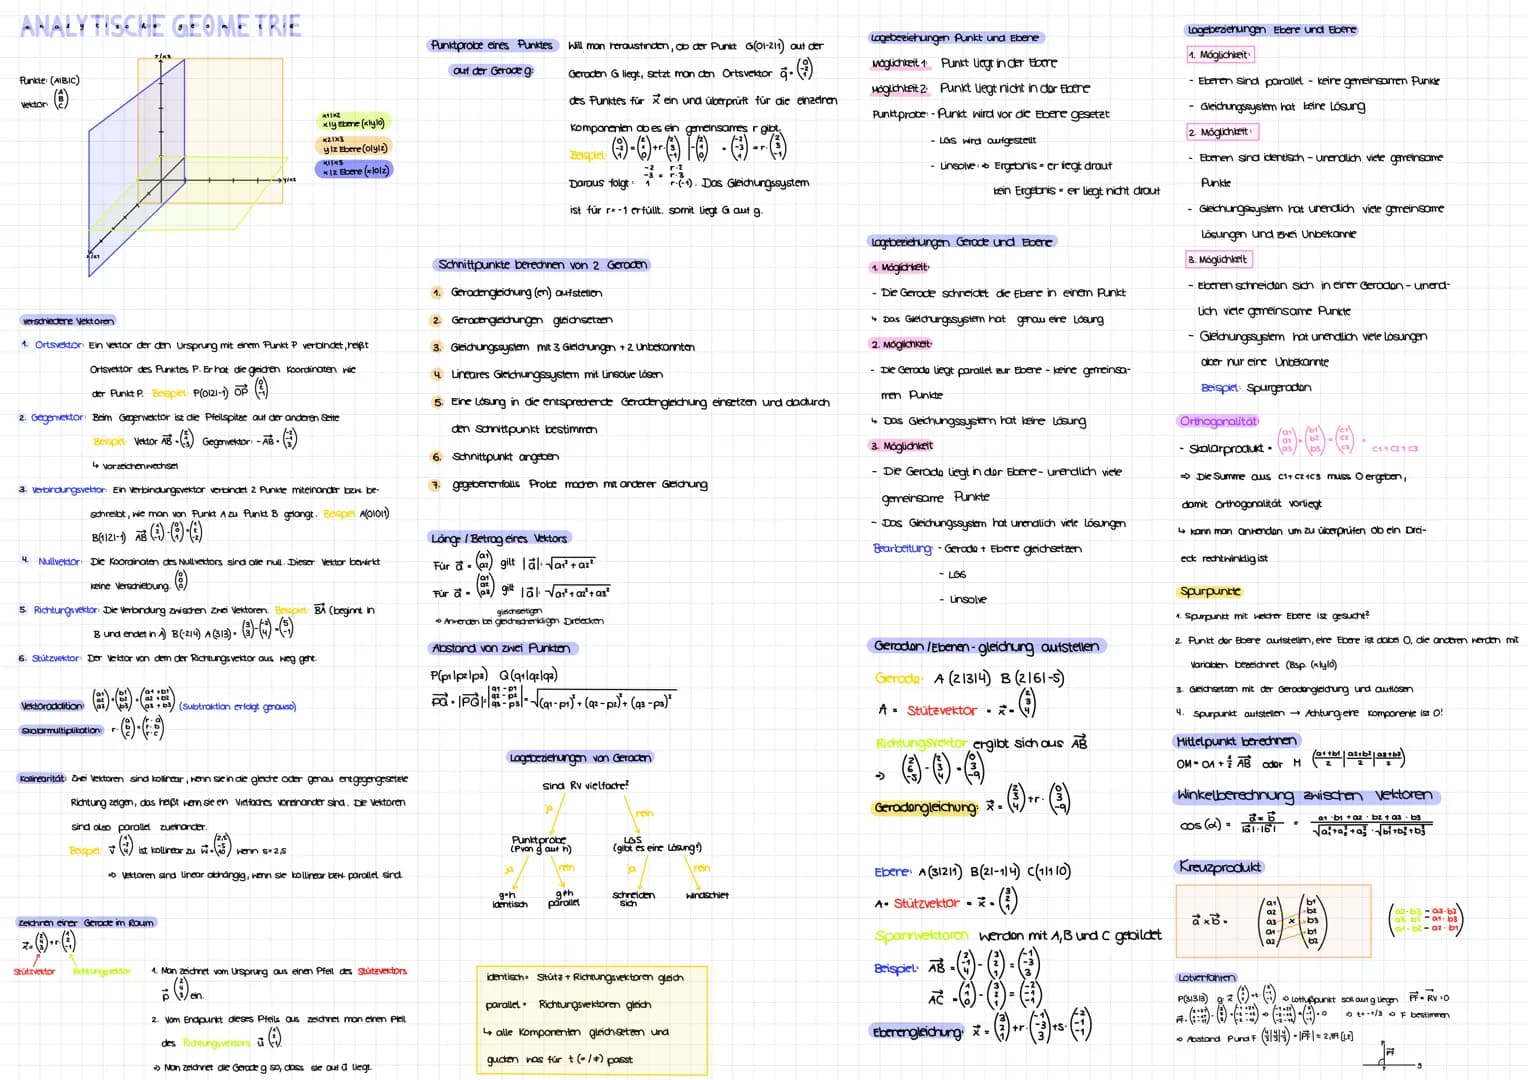 ANALYTISCHE GEOMETRIE
Punkte: (A|B|C)
Vektor: (A B C)
x1/x3
x1x2
x|y Ebene (x|y|0)
x2x3
y|z Ebene (0|y|z)
x1x3
x|z Ebene (x|0|z)
verschiedene Vektoren
1. Ortsvektor: Ein Vektor der den Ursprung mit einem Punkt P verbindet, heißt
Ortsvektor des Punktes P. Er hat die gleichen Koordinaten wie
der Punkt P. Beispiel: P(0|2|-1) OP (0 2 -1)
2. Gegenvektor: Beim Gegenvektor ist die Pfeilspitze auf der anderen Seite
Beispiel: Vektor AB = Gegenvektor: -AB =
↳ Vorzeichenwechsel
3. Verbindungsvektor: Ein Verbindungsvektor verbindet 2 Punkte miteinander bzw. be-
schreibt, wie man von Punkt A zu Punkt B gelangt. Beispiel A(0|0|1)
B(1|2|-1) AB
4. Nullvektor: Die Koordinaten des Nullvektors sind alle null. Dieser Vektor bewirkt
keine Verschiebung. (0 0 0)
5. Richtungsvektor: Die Verbindung zwischen zwei Vektoren. Beispiel: BA (beginnt in
B und endet in A) B(-2|4) A(3|3) = (3 3) - (-2 4) = (5 -1)
6. Stützvektor: Der Vektor von dem der Richtungsvektor aus weg geht.
Vektoraddition: (a1 a2 a3) + (b1 b2 b3) = (a1+b1 a2+b2 a3+b3) (Subtraktion erfolgt genauso)
Skalarmultiplikation: r · (a b c) = (r·a r·b r·c)
Kollinearität: Zwei Vektoren sind kollinear, wenn sie in die gleiche oder genau entgegengesetzte
Richtung zeigen, das heißt wenn sie ein Vielfaches voneinander sind. Die Vektoren
sind also parallel zueinander.
Beispiel: v ist kollinear zu w = wenn s=2,5
⇒ Vektoren sind linear abhängig, wenn sie kollinear bzw. parallel sind.
zeichnen einer Gerade im Raum
Stützvektor Richtungsvektor
1. Man zeichnet vom Ursprung aus einen Pfeil des Stützvektors
p ein.
2. Vom Endpunkt dieses Pfeils aus zeichnet man einen Pfeil
des Richtungsvektors u
⇒ Man zeichnet die Gerade g so, dass sie auf u liegt.
Punktprobe eines Punktes
auf der Gerade g:
Will man herausfinden, ob der Punkt G(0|-2|1) auf der
Geraden G liegt, setzt man den Ortsvektor g = (0 -2 1)
des Punktes für x ein und überprüft für die einzelnen
Komponenten ob es ein gemeinsames r gibt.
Beispiel: (0 -2 1) = (2 1 0) + r · (2 3 -1) | - (2 1 0) = (-2 -3 1) = r · (2 3 -1)
Daraus folgt: -2 = r·2 -3 = r·3 1 = r·(-1). Das Gleichungssystem
ist für r=-1 erfüllt. somit liegt G auf g.
Schnittpunkte berechnen von 2 Geraden
1. Geradengleichung(en) aufstellen
2. Geradengleichungen gleichsetzen
3. Gleichungssystem mit 3 Gleichungen + 2 Unbekannten
4. Lineares Gleichungssystem mit Linsolve lösen
5. Eine Lösung in die entsprechende Geradengleichung einsetzen und dadurch
den Schnittpunkt bestimmen
6. Schnittpunkt angeben
7. gegebenenfalls Probe machen mit anderer Gleichung
Länge / Betrag eines Vektors
Für a = (a1 a2) gilt |a|: √a1²+a2²
Für a = (a1 a2 a3) gilt |a|: √a1²+a2²+a3²
gleichseitigen
⇒ Anwenden bei gleichschenkligen Dreiecken
Abstand von zwei Punkten
P(p1|p2|p3) Q(q1|q2|q3)
PQ = |PQ| = |q1-p1 q2-p2 q3-p3| = √(q1-p1)² + (q2-p2)² + (q3-p3)²
Lagebeziehungen von Geraden
sind RV vielfache?
ja nein
Punktprobe (P von g auf h)
LGS (gibt es eine Lösung?)
ja nein ja nein
g=h identisch
g≠h parallel
schneiden sich
windschief
identisch = Stütz + Richtungsvektoren gleich
parallel = Richtungsvektoren gleich
↳ alle Komponenten gleichsetzen und
gucken was für t (=/≠) passt
Lagebeziehungen Punkt und Ebene
Möglichkeit 1: Punkt liegt in der Ebene
Möglichkeit 2: Punkt liegt nicht in der Ebene
Punktprobe: - Punkt wird vor die Ebene gesetzt
- LGS wird aufgestellt
- Linsolve: ⇒ Ergebnis = er liegt drauf
kein Ergebnis = er liegt nicht drauf
Lagebeziehungen Gerade und Ebene
1. Möglichkeit:
- Die Gerade schneidet die Ebene in einem Punkt
↳ Das Gleichungssystem hat genau eine Lösung
2. Möglichkeit:
- Die Gerade liegt parallel zur Ebene - keine gemeinsa-
men Punkte
↳ Das Gleichungssystem hat keine Lösung
3. Möglichkeit
- Die Gerade liegt in der Ebene - unendlich viele
gemeinsame Punkte
- Das Gleichungssystem hat unendlich viele lösungen
Bearbeitung: - Gerade + Ebene gleichsetzen
- LGS
- Linsolve
Geraden/Ebenen-gleichung aufstellen
Gerade: A (2|3|4) B (2|6|-5)
A = Stützvektor = x = (2 3 4)
Richtungsvektor ergibt sich aus AB
⇒ (2 6 -5) - (2 3 4) = (0 3 -9)
Geradengleichung: x = (2 3 4) + r · (0 3 -9)
Ebene: A(3|2|1) B(2|-1|4) C(1|1|0)
A = Stützvektor = x = (3 2 1)
Spannvektoren werden mit A, B und C gebildet
Beispiel: AB = (2 -1 4) - (3 2 1) = (-1 -3 3)
AC = (1 1 0) - (3 2 1) = (-2 -1 -1)
Ebenengleichung: x = (3 2 1) + r · (-1 -3 3) + s · (-2 -1 -1)
Lagebeziehungen Ebene und Ebene
1. Möglichkeit:
- Ebenen sind parallel - keine gemeinsamen Punkte
- Gleichungssystem hat keine Lösung
2. Möglichkeit:
- Ebenen sind identisch - unendlich viele gemeinsame
Punkte
- Gleichungssystem hat unendlich viele gemeinsame
Lösungen und zwei Unbekannte
3. Möglichkeit
- Ebenen schneiden sich in einer Geraden - unend-
lich viele gemeinsame Punkte
- Gleichungssystem hat unendlich viele lösungen
aber nur eine Unbekannte
Beispiel: Spurgeraden
Orthogonalität:
- Skalarprodukt = (a1 a2 a3) · (b1 b2 b3) = (c1 c2 c3) = c1+c2+c3
⇒ Die Summe aus c1+c2+c3 muss 0 ergeben,
damit Orthogonalität vorliegt
↳ kann man anwenden um zu überprüfen ob ein Drei-
eck rechtwinklig ist
Spurpunkte
1. Spurpunkt mit welcher Ebene ist gesucht?
2. Punkt der Ebene aufstellen, eine Ebene ist dabei 0, die anderen werden mit
Variablen bezeichnet (Bsp. (x|y|0)
3. Gleichsetzen mit der Geradengleichung und auflösen
4. Spurpunkt aufstellen → Achtung eine Komponente ist 0!
Mittelpunkt berechnen
OM = OA + ½ AB oder M (a1+b1/2 | a2+b2/2 | a3+b3/2)
Winkelberechnung zwischen Vektoren
cos(α) = a·b / |a|·|b| = a1·b1 + a2·b2 + a3·b3 / √a1²+a2²+a3² · √b1²+b2²+b3²
Kreuzprodukt
a × b = (a1 a2 a3 a1 a2) × (b1 b2 b3 b1 b2)
(a2·b3 - a3·b2 a3·b1 - a1·b3 a1·b2 - a2·b1)
Lotverfahren
⇒ Lotfußpunkt soll auf g liegen PF · RV = 0
⇒ F bestimmen
⇒ Abstand P und F = |PF| = 2,89 [LE]